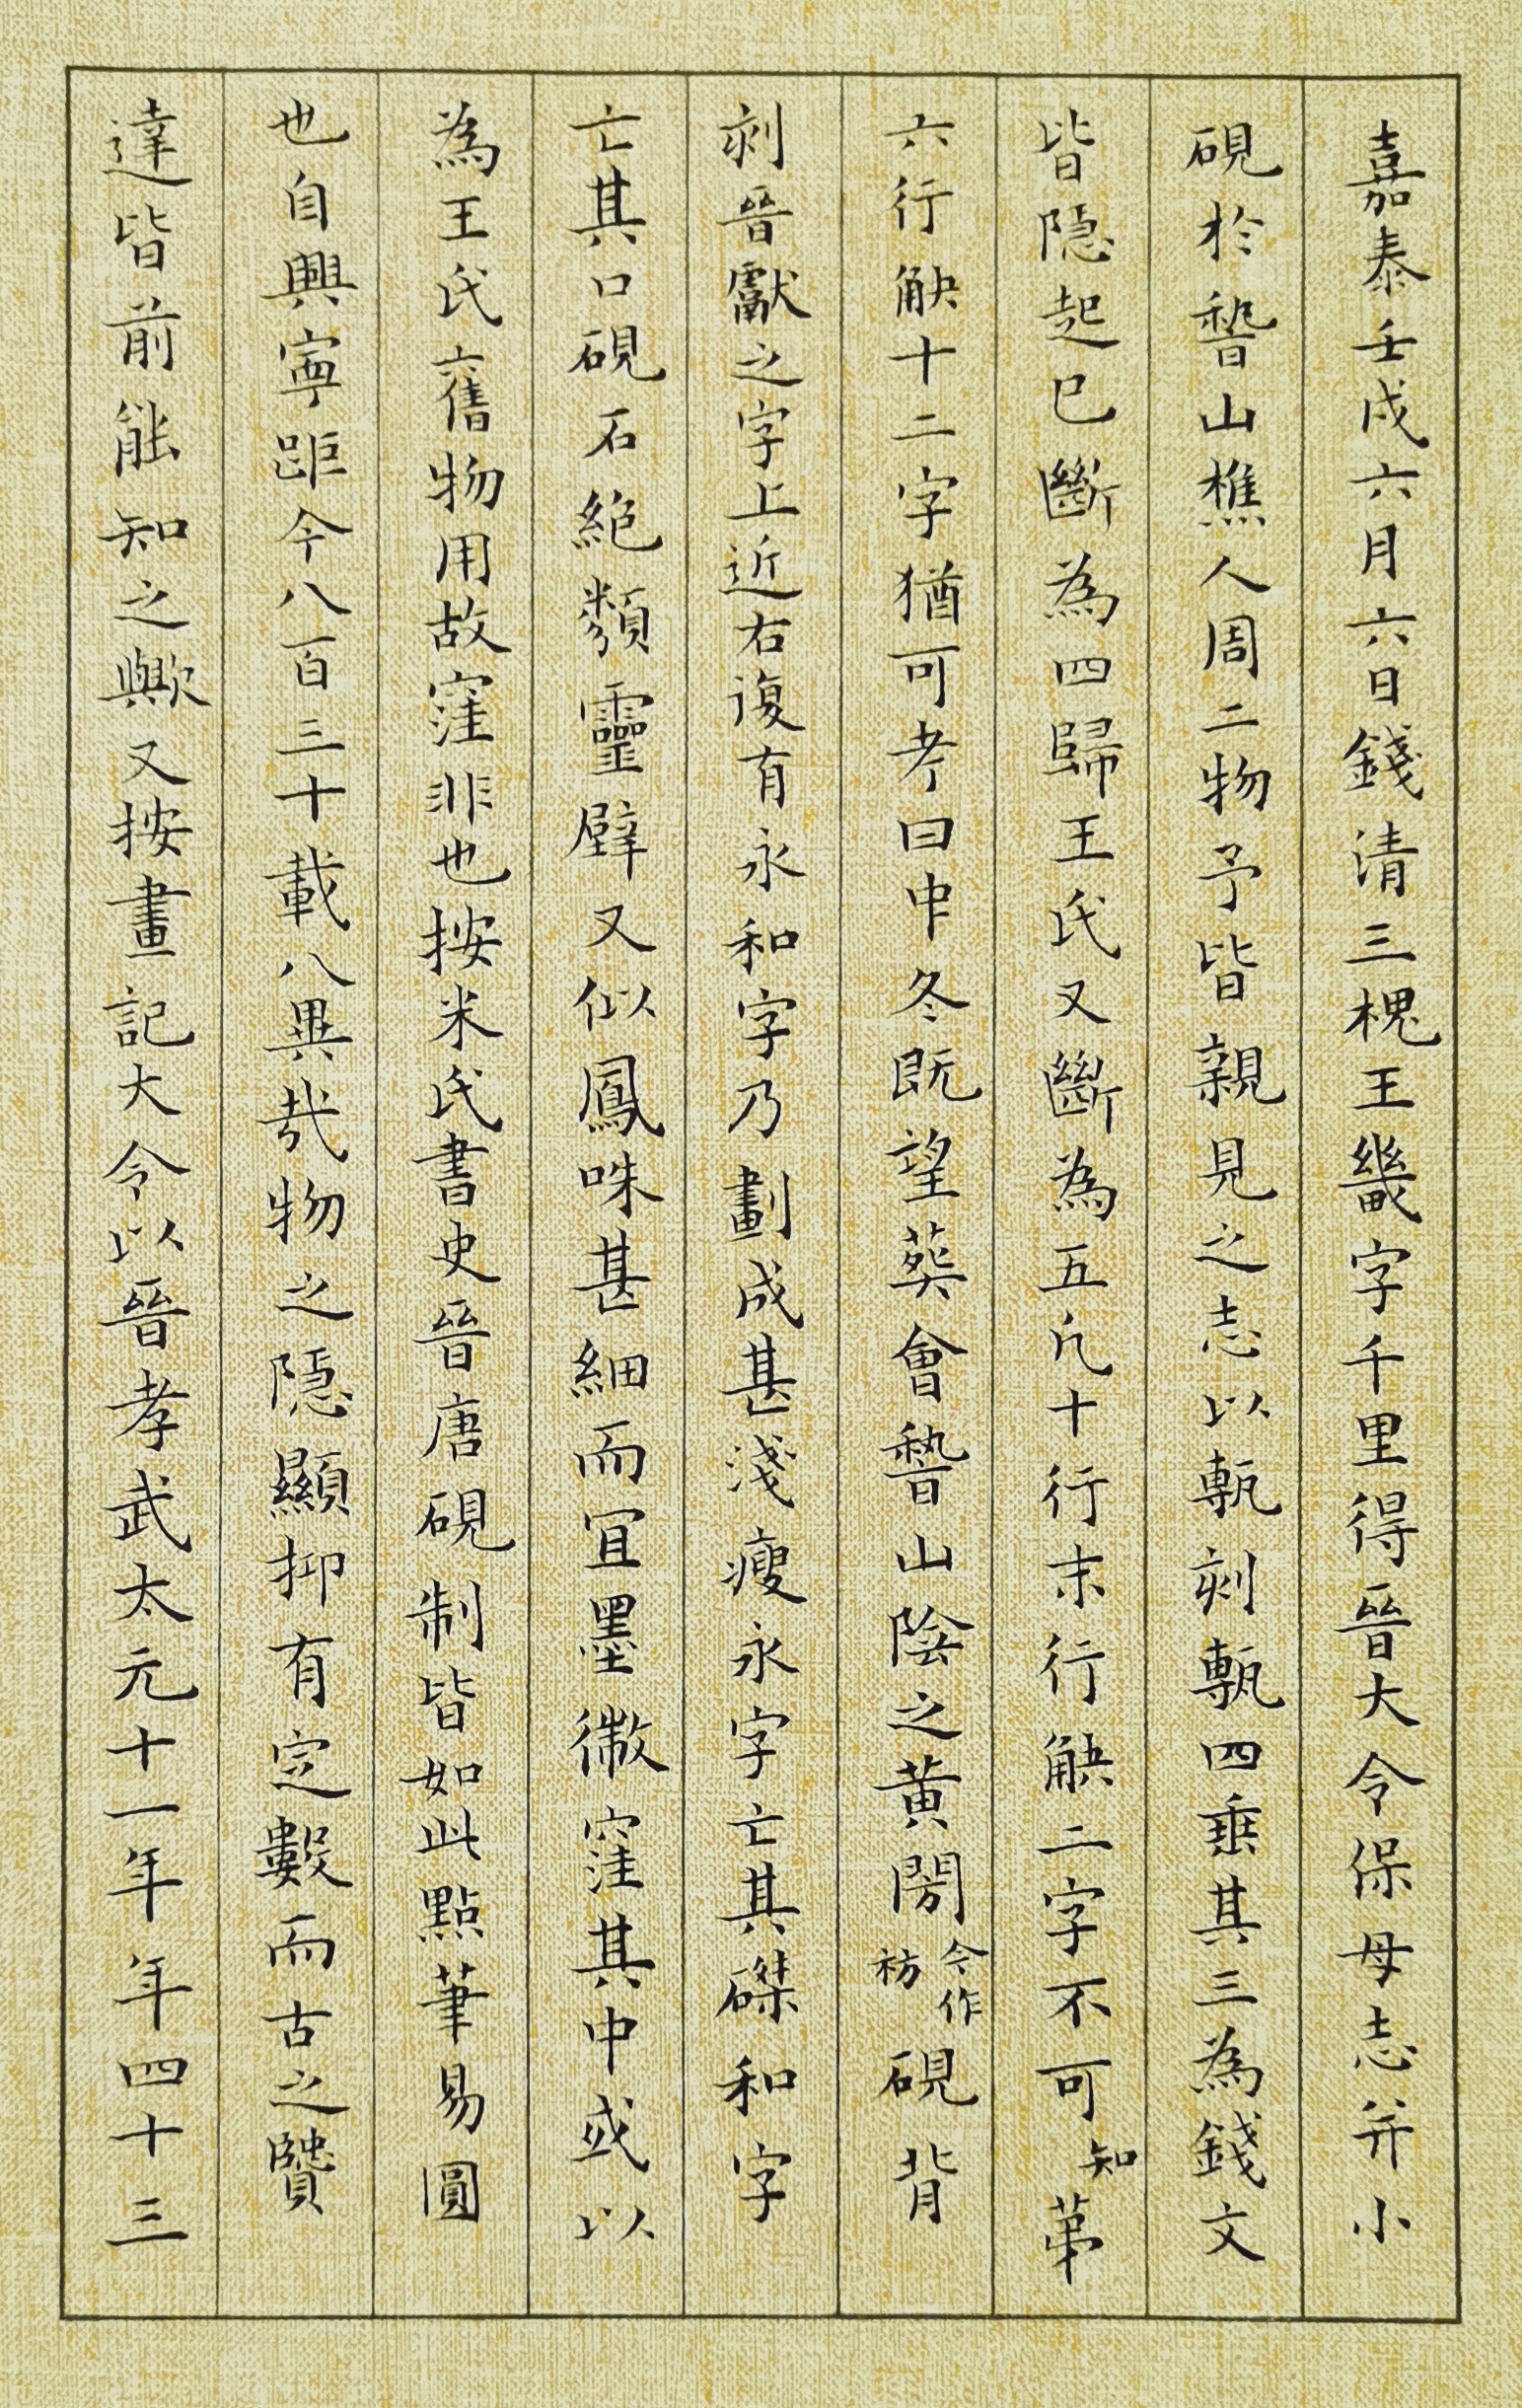 嘉泰壬戌六月六日錢清三槐王畿字千里得晉大令保母志并小
硯於嵇山樵人周二物予皆親見之志以甎刻甎四垂其三為錢文
皆隱起已斷為四歸王氏又斷為五凡十行末行缺二字不可知第
六行缺十二字猶可考曰中冬既望葬會嵇山陰之黃閍今作祊硯背
刻晉獻之字上近右復有永和字乃劃成甚淺瘦永字亡其磔和字
亡其口硯石絕類靈壁又似鳳咮甚細而宜墨微窪其中或以
為王氏舊物用故窪非也按米氏書史晉唐硯制皆如此點筆易圓
也自興寧距今八百三十載八異哉物之隱顯抑有定數而古之賢
達皆前能知之歟又按畫記大令以晉孝武太元十一年年四十三